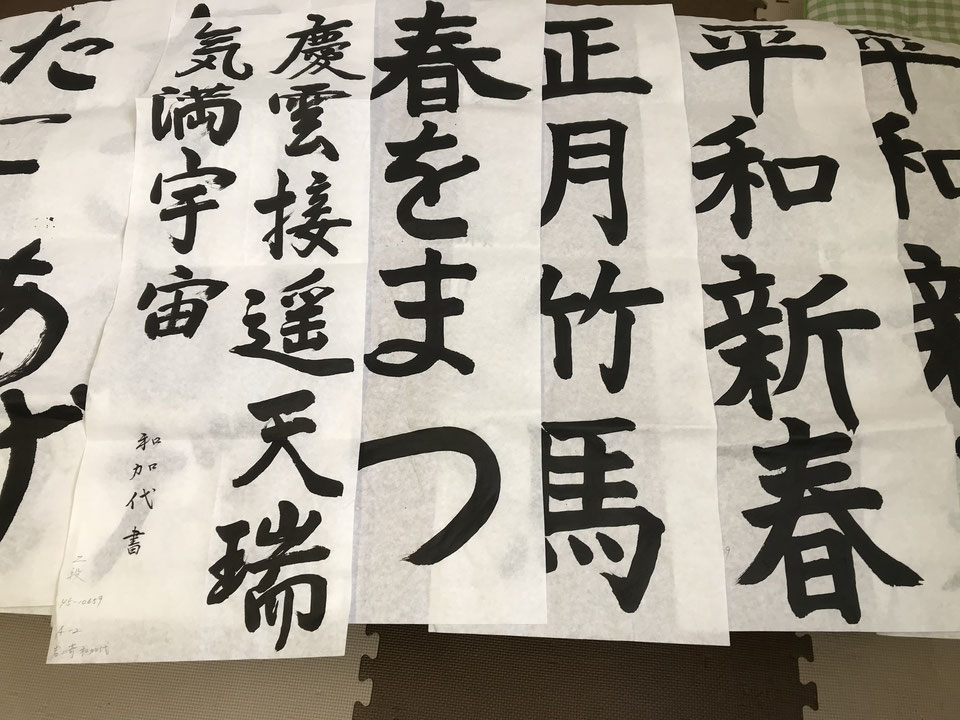 平和新
平和新春
正月竹馬
春をまつ
慶雲接遥天瑞
気満宇宙
和加代書
二段
45-10659
4-2
たこあげ